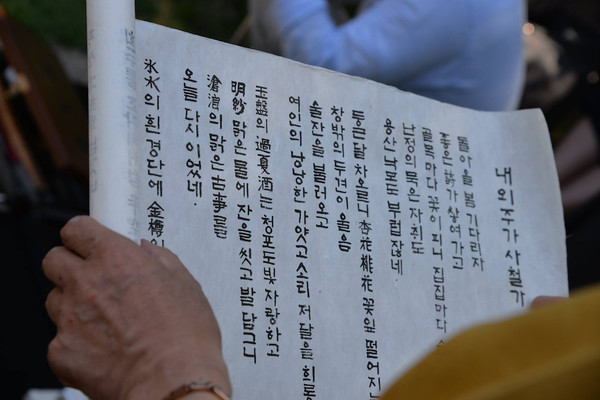 내외주가 사철가
돌아올 봄 기다리자
좋은 詩가 쌓여가고
골목마다 꽃이 피니 집집마다
난정의 묵은 자취도
용산 낙모도 부럽잖네
둥근 달 차오르니 杏花 桃花 꽃잎 떨어지
창밖의 두견이 울음
술잔을 불러오고
여인의 낭낭한 가얏고 소리 저 달을 희롱
玉盤의 過夏酒는 청포도빛 자랑하고
明紗 맑은 물에 잔을 씻고 발 담그니
滄浪의 맑은 古事를
오늘 다시 이었네.
氷水의 흰 경단에 金橘